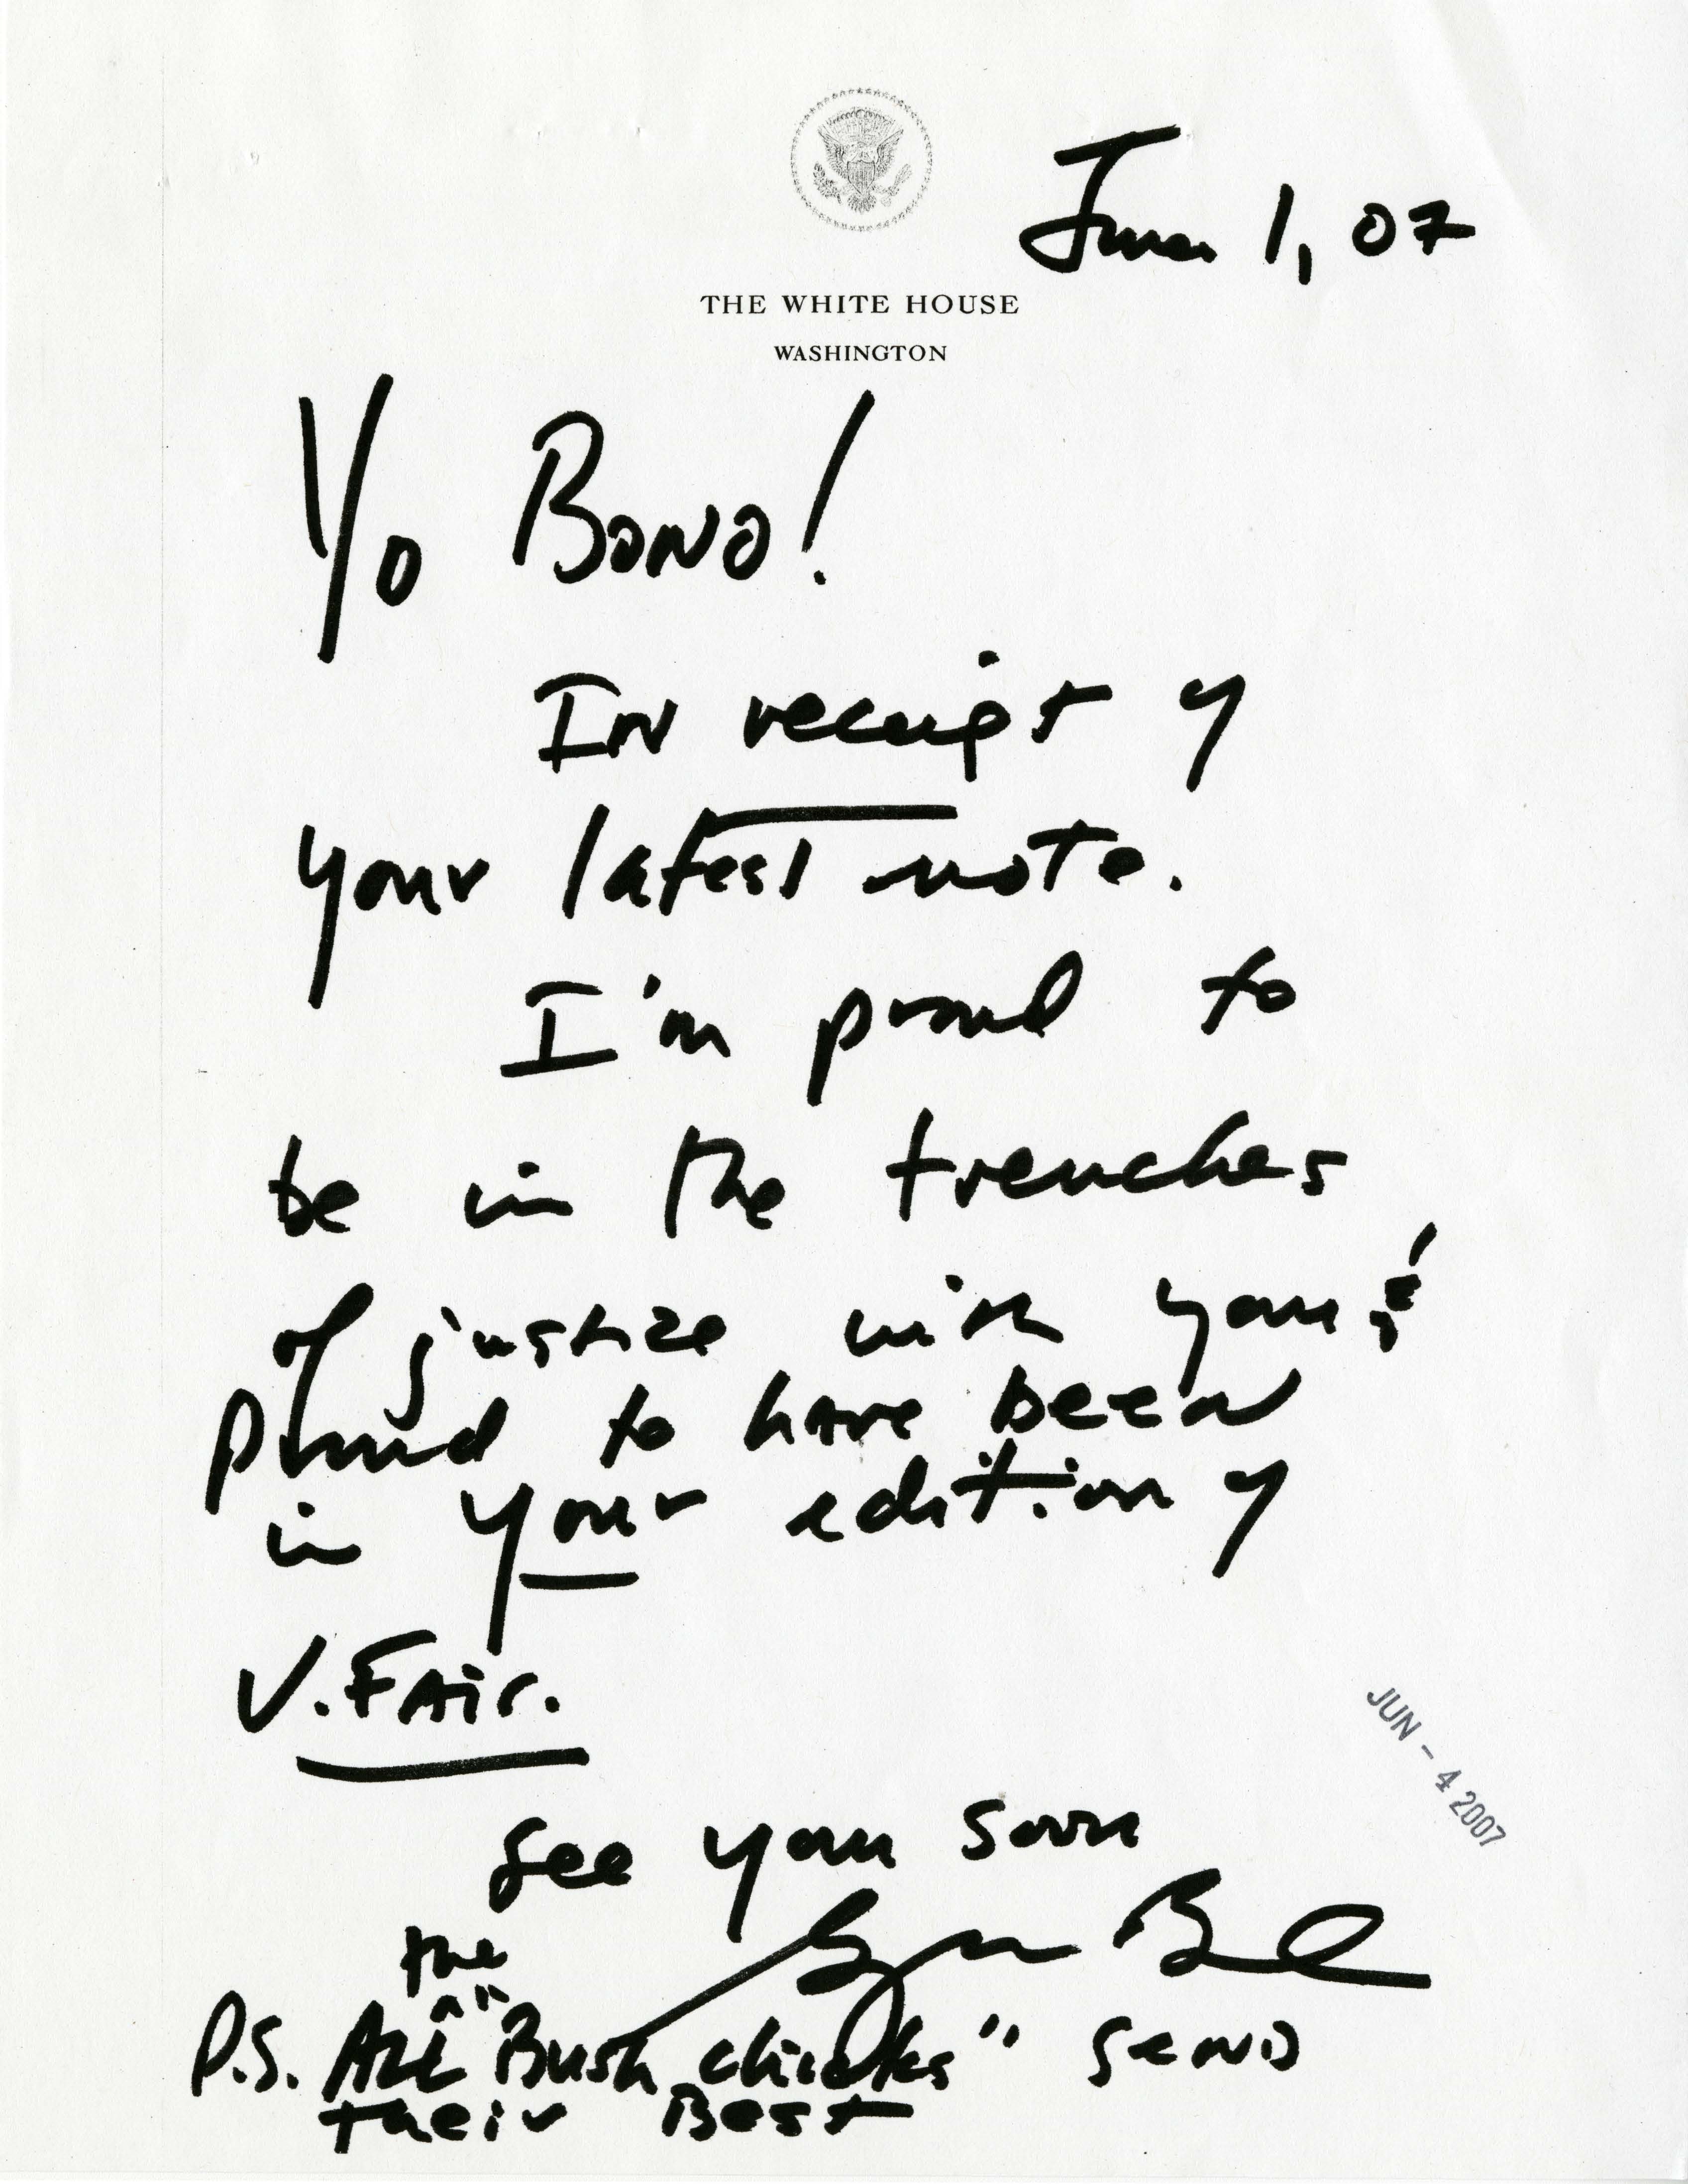 June 1, 07
THE WHITE HOUSE
WASHINGTON
Yo Bono!
In receipt of
your latest note.
I'm proud to
be in the trenches
of justice with you &
proud to have been
in your edition of
V. FAir.
see you soon
the
P.S. All "Bush chicks" send
their Best
JUN - 4 2007